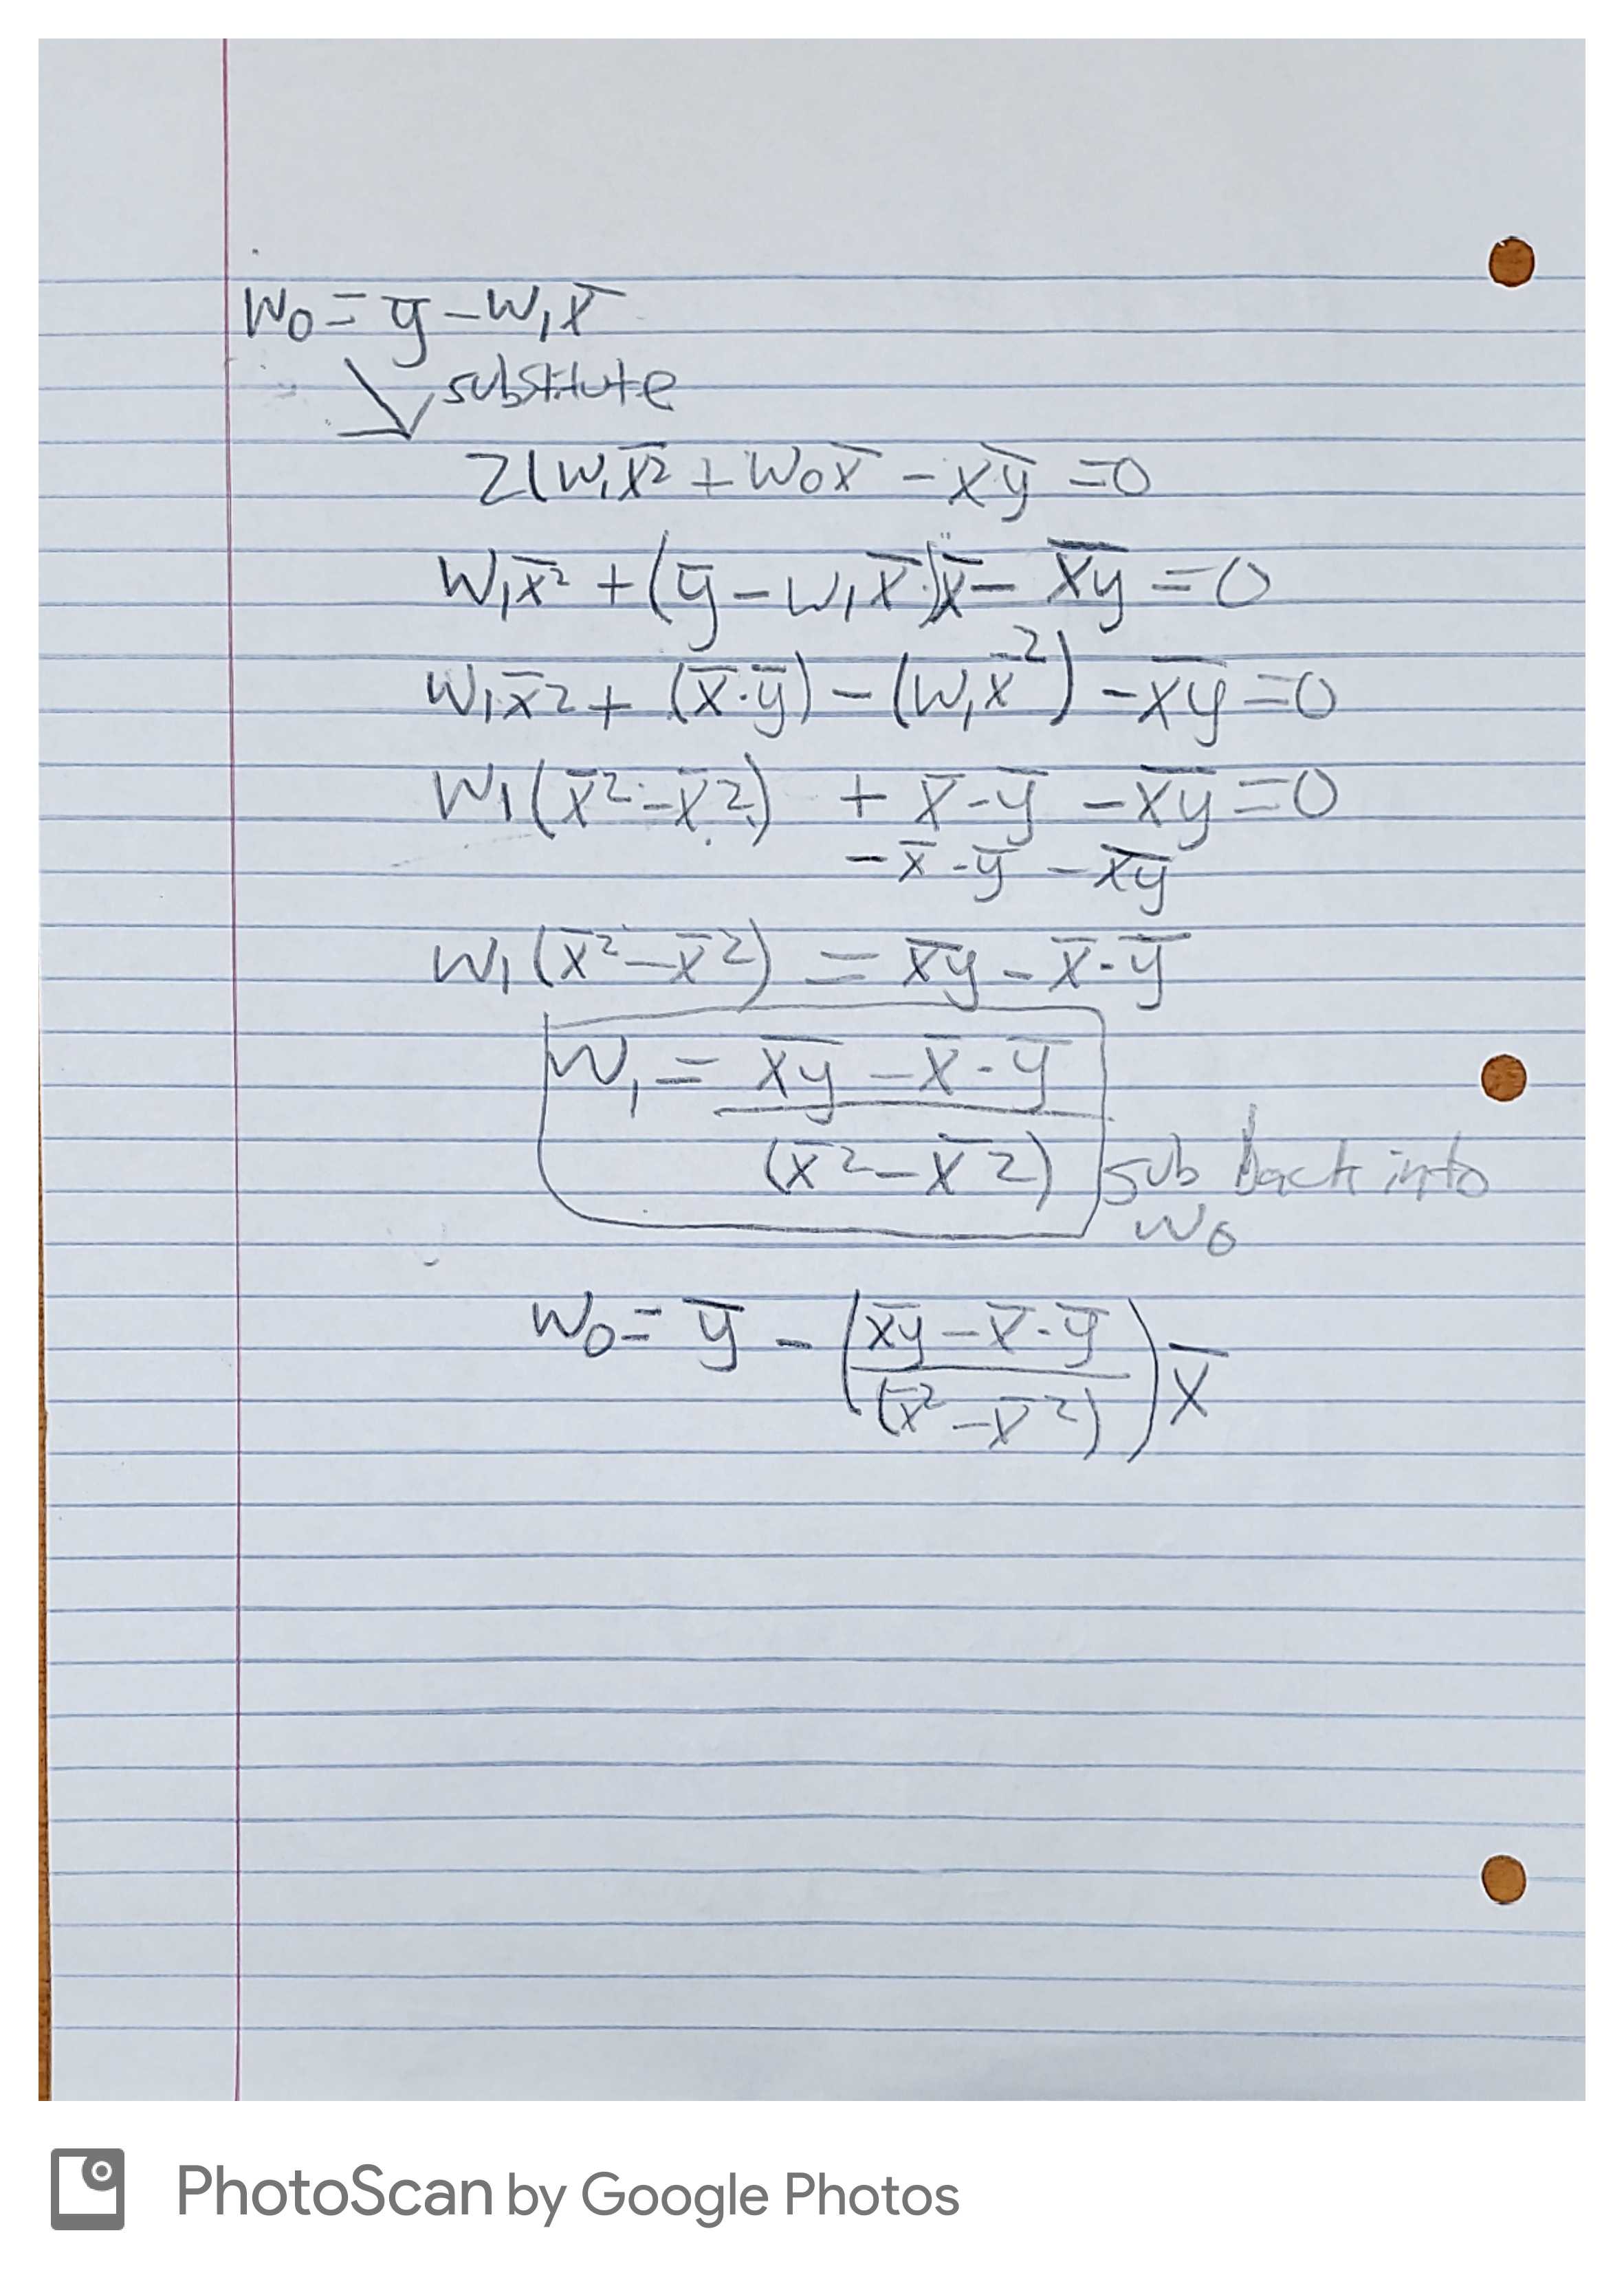 W₀ = y̅ - W₁x̅
substitute
2(W₁x̅² + W₀x̅ - x̅y̅ = 0
W₁x̅² + (y̅ - W₁x̅)x̅ - x̅y̅ = 0
W₁x̅2 + (x̅·y̅) - (W₁x̅²) - x̅y̅ = 0
W₁(x̅² - x̅2) + x̅-y̅ - x̅y̅ = 0
- x̅-y̅ - x̅y̅
W₁(x̅² - x̅²) = x̅y̅ - x̅-y̅
W₁ = x̅y̅ - x̅-y̅
(x̅2 - x̅2) sub back into
W₀
W₀ = y̅ - (x̅y̅ - x̅-y̅ / (x̅² - x̅²)) x̅
PhotoScan by Google Photos